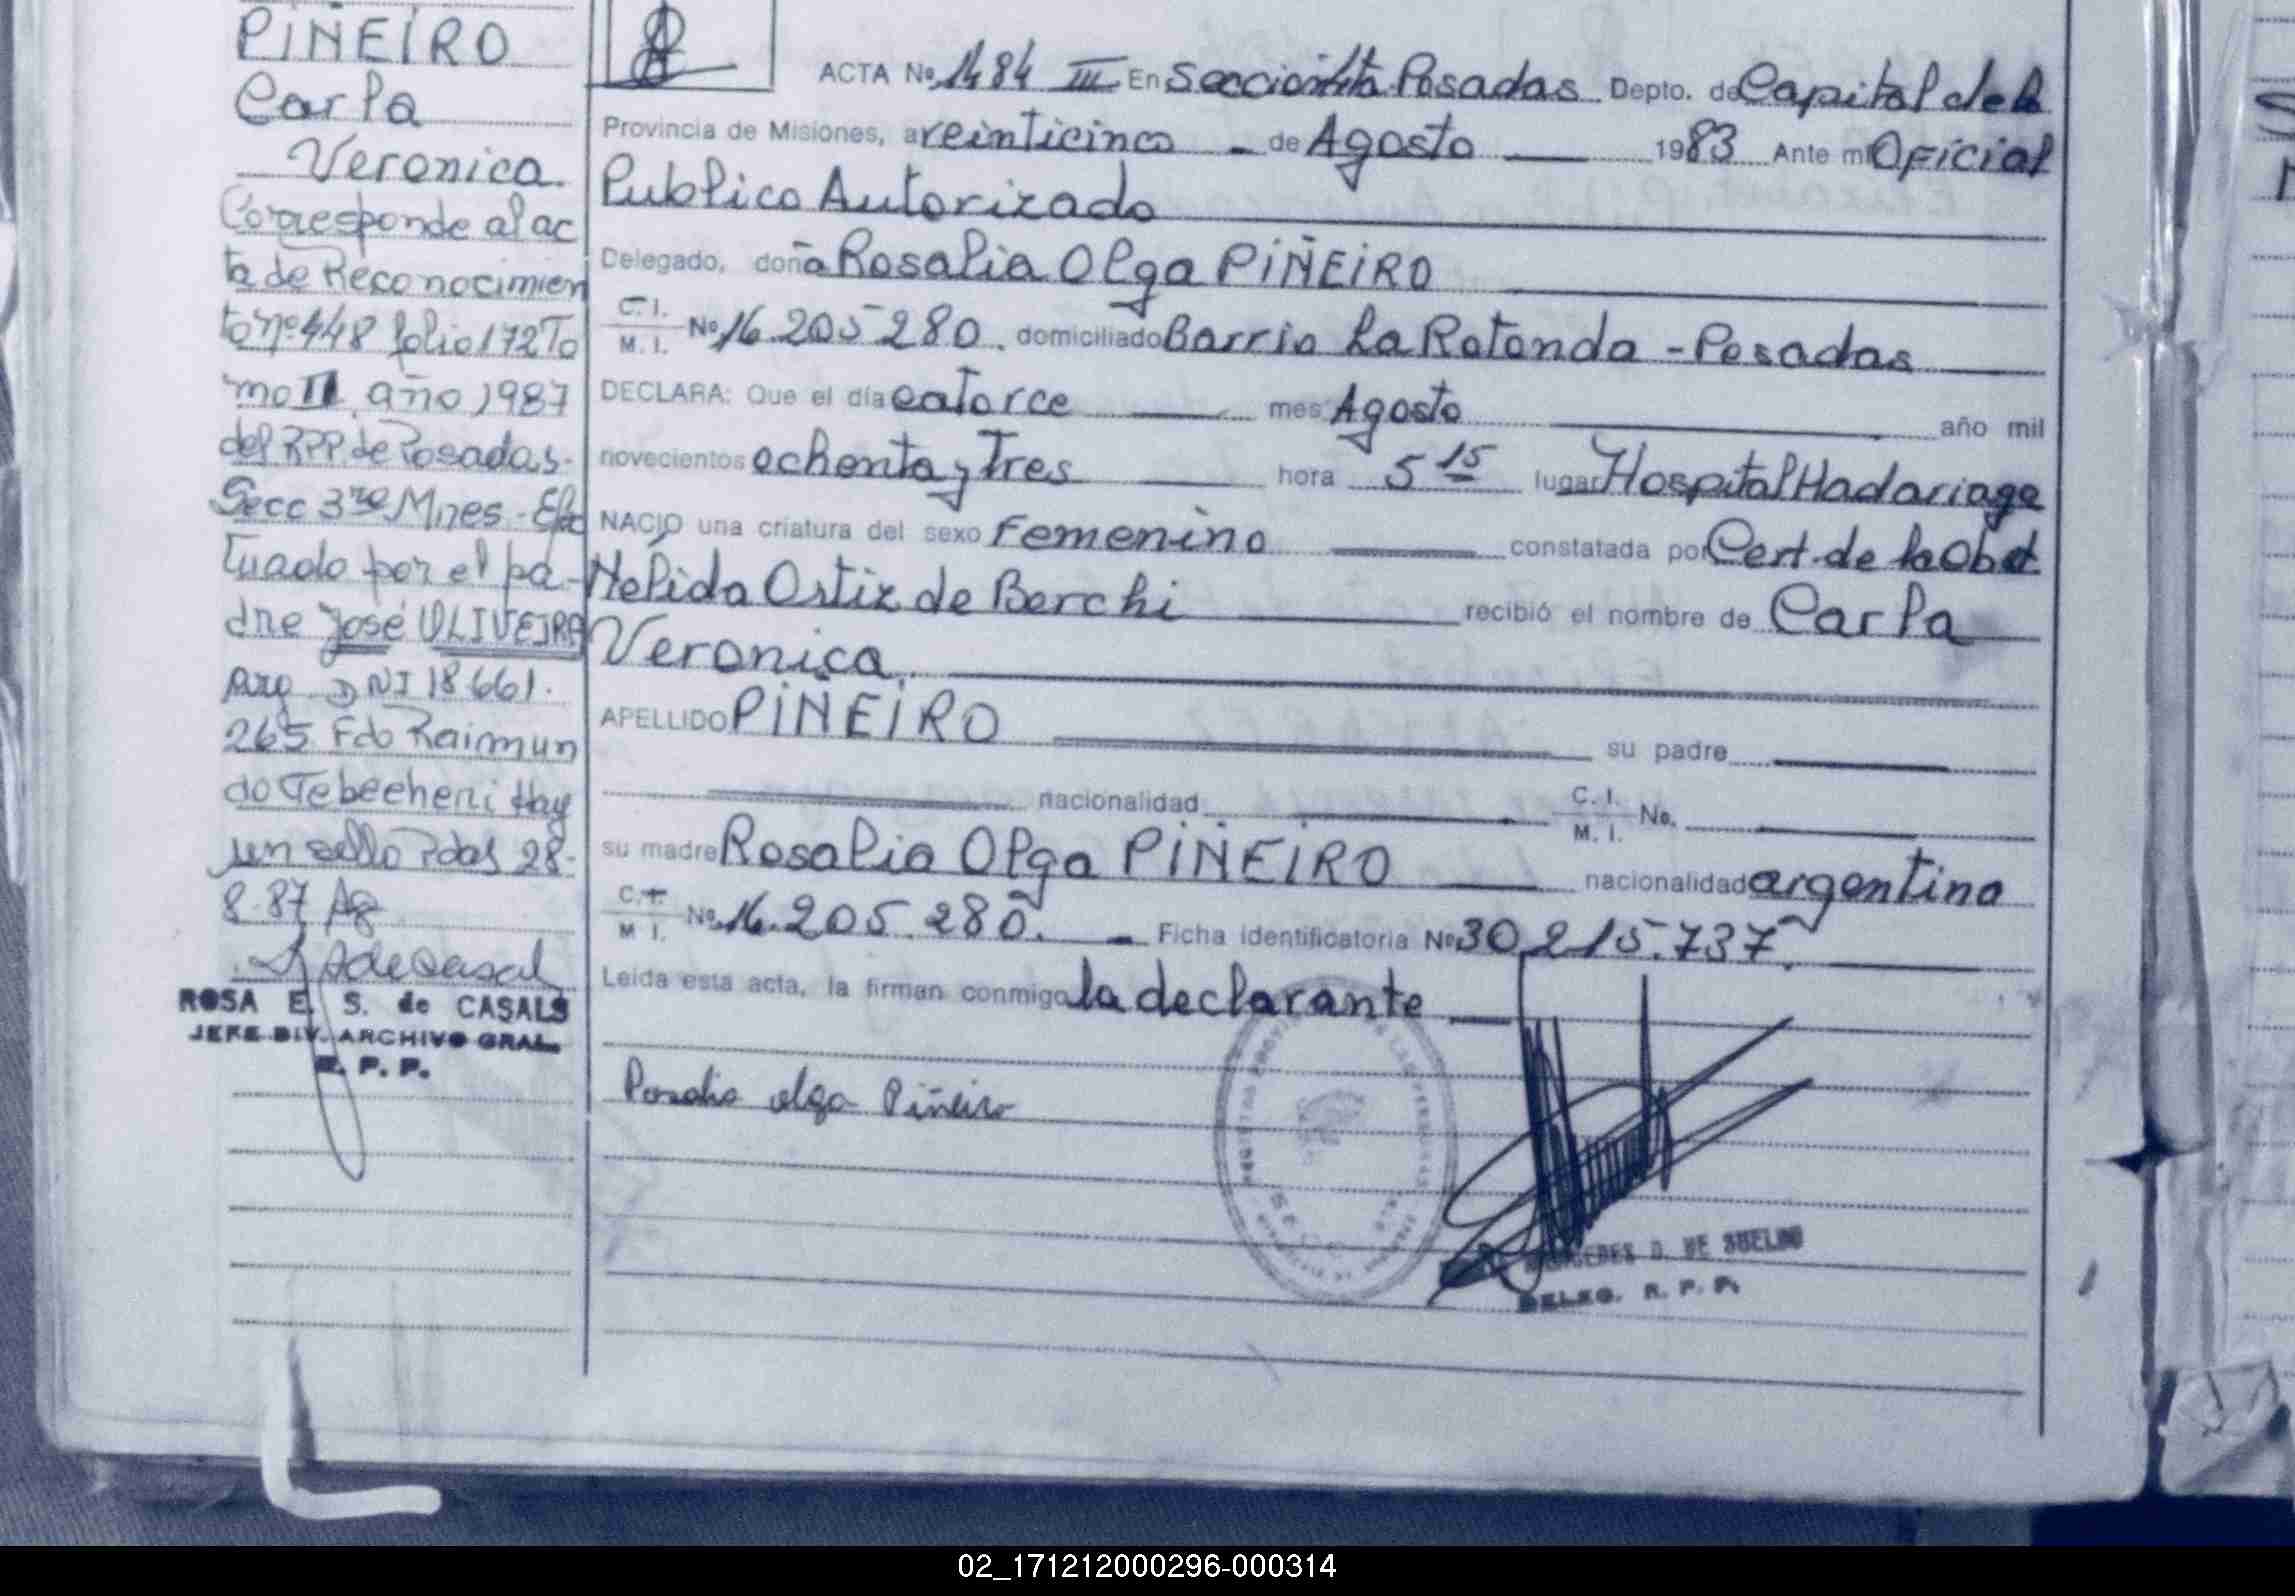 PIÑEIRO
Carla
Veronica
Corresponde al ac
ta de Reconocimien
to nº 448 folio 172 To
mo II año 1987
del RPP. de Posadas.
Secc 3ra Mnes - Efec
tuado por el pa-
dre José OLIVEIRA
Arg DNI 18.661.
265 Fdo Raimun
do Tebecheri Hay
un sello Pdas 28-
8-87
ROSA E. S. de CASALS
JEFE DIV. ARCHIVO GRAL.
R. P. P.
ACTA No. 1484 III En Seccion Posadas Depto. de Capital de la
Provincia de Misiones, a veinticinco de Agosto 1983 Ante mi Oficial
Publico Autorizado
Delegado, doña Rosalia Olga PIÑEIRO
C. I.
M. I. No 16.205.280. domiciliado Barrio La Rotonda - Posadas
DECLARA: Que el día catorce mes Agosto año mil
novecientos ochenta y Tres hora 5 15 lugar Hospital Madariaga
NACIO una criatura del sexo Femenino constatada por Cert. de la Obst.
Nelida Ortiz de Berchi recibió el nombre de Carla
Veronica
APELLIDO PIÑEIRO su padre
nacionalidad C. I. M. I. No.
su madre Rosalia Olga PIÑEIRO nacionalidad argentina
C. I.
M. I. No. 16.205.280. Ficha identificatoria No 30.215.737.
Leida esta acta, la firman conmigo la declarante
Rosalia olga Piñeiro
D. DE SUELDO
DELEG. R. P. P.
02_171212000296-000314